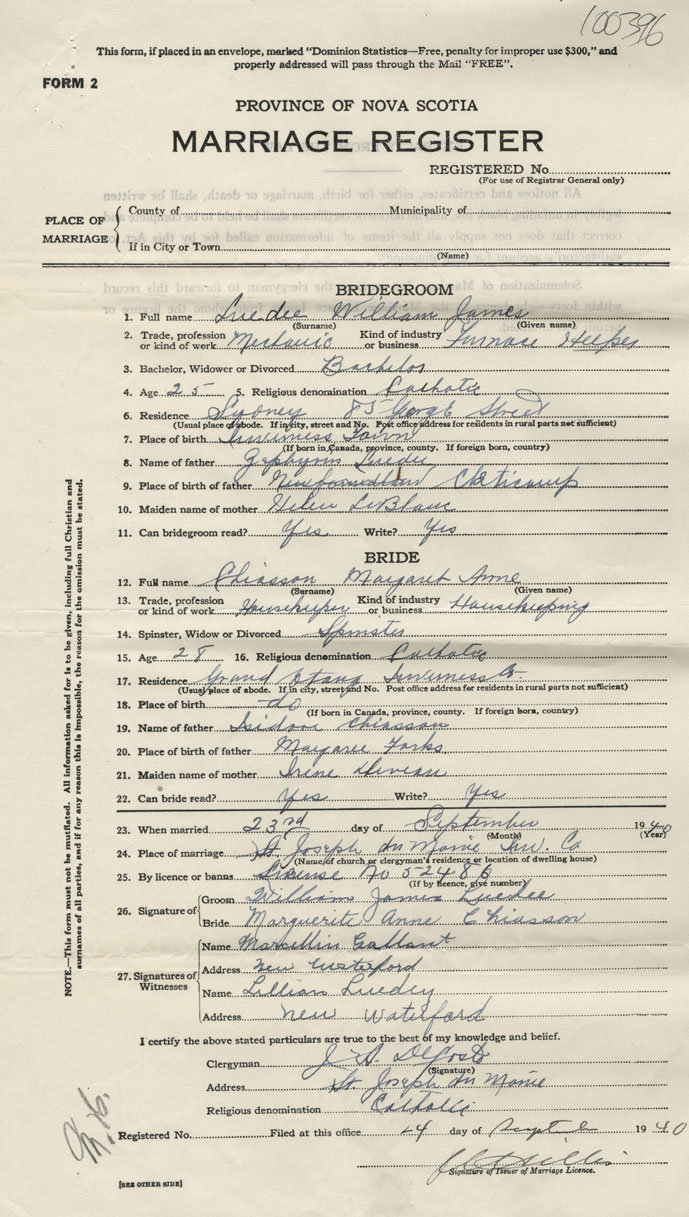 100396
This form, if placed in an envelope, marked "Dominion Statistics—Free, penalty for improper use $300," and
properly addressed will pass through the Mail "FREE".
FORM 2
PROVINCE OF NOVA SCOTIA
MARRIAGE REGISTER
REGISTERED No.
(For use of Registrar General only)
PLACE OF MARRIAGE
County of Municipality of
If in City or Town
(Name)
BRIDEGROOM
1. Full name Luedee William James
(Surname) (Given name)
2. Trade, profession or kind of work Mechanic Kind of industry or business Furnace Helper
3. Bachelor, Widower or Divorced Bachelor
4. Age 25 5. Religious denomination Catholic
6. Residence Sydney 85 George Street
(Usual place of abode. If in city, street and No. Post office address for residents in rural parts not sufficient)
7. Place of birth Inverness Town
(If born in Canada, province, county. If foreign born, country)
8. Name of father Luedee
9. Place of birth of father Newfoundland Cheticamp
10. Maiden name of mother Helen LeBlanc
11. Can bridegroom read? Yes Write? Yes
BRIDE
12. Full name Chiasson Margaret Anne
(Surname) (Given name)
13. Trade, profession or kind of work Housekeeper Kind of industry or business Housekeeping
14. Spinster, Widow or Divorced Spinster
15. Age 28 16. Religious denomination Catholic
17. Residence Grand Etang Inverness Co.
(Usual place of abode. If in city, street and No. Post office address for residents in rural parts not sufficient)
18. Place of birth do
(If born in Canada, province, county. If foreign born, country)
19. Name of father Isidore Chiasson
20. Place of birth of father Margaree Forks
21. Maiden name of mother Irene Deveau
22. Can bride read? Yes Write? Yes
23. When married 23rd day of September 1940
(Month) (Year)
24. Place of marriage St Joseph du Moine Inv. Co
(Name of church or clergyman's residence or location of dwelling house)
25. By licence or banns License No 52486
(If by licence, give number)
26. Signature of
Groom William James Luedee
Bride Marguerite Anne Chiasson
27. Signatures of Witnesses
Name Marcellin Gallant
Address New Waterford
Name Lillian Luedey
Address New Waterford
I certify the above stated particulars are true to the best of my knowledge and belief.
Clergyman J. A. DeCoste
(Signature)
Address St Joseph du Moine
Religious denomination Catholic
Registered No. Filed at this office 24 day of 1940
Signature of Issuer of Marriage Licence.
[SEE OTHER SIDE]
NOTE.—This form must not be mutilated. All information asked for is to be given, including full Christian and
surnames of all parties, and if for any reason this is impossible, the reason for the omission must be stated.